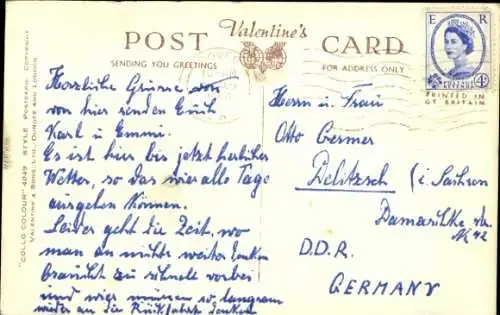 POST Valentine's CARD
SENDING YOU GREETINGS
FOR ADDRESS ONLY
E R
POSTAGE REVENUE
4D
PRINTED IN
GT BRITAIN
"COLLO COLOUR" 4049 STYLE POSTCARD. COPYRIGHT
VALENTINE & SONS, LTD., DUNDEE AND LONDON
Herzliche Grüsse von
von hier senden Euch
Karl u. Emmi.
Es ist hier bis jetzt herrliches
Wetter, so das wir alle Tage
ausgehen können.
Leider geht die Zeit, wo
man an nichts weiter denken
braucht zu schnell vorbei
und wir müssen so langsam
wieder an die Rückfahrt denken
Herrn u. Frau
Otto Germer
Delitzsch (i. Sachsen
str.
№ 42
D.D.R.
GERMANY